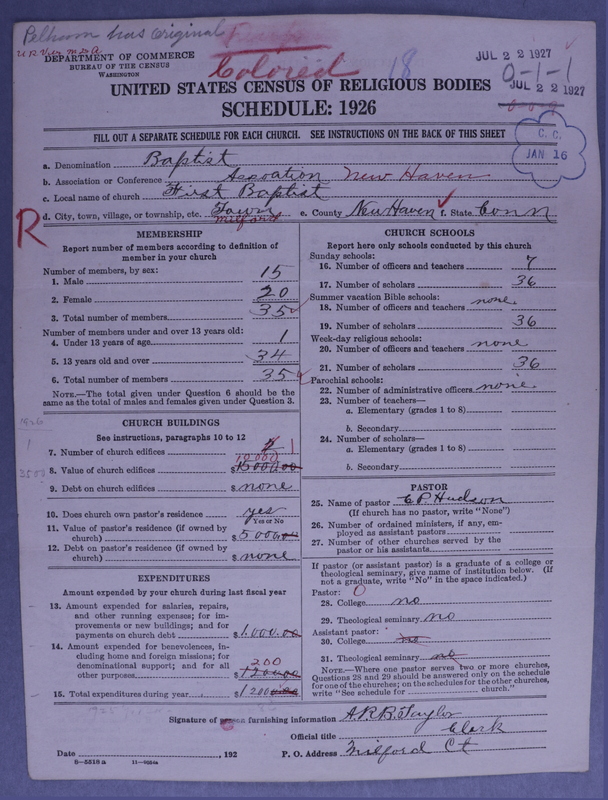 Pelham has original
DEPARTMENT OF COMMERCE
BUREAU OF THE CENSUS
WASHINGTON
Colored
18
JUL 22 1927
0-1-1
JUL 22 1927
UNITED STATES CENSUS OF RELIGIOUS BODIES
SCHEDULE: 1926
FILL OUT A SEPARATE SCHEDULE FOR EACH CHURCH. SEE INSTRUCTIONS ON THE BACK OF THIS SHEET
C. C.
JAN 16
a. Denomination Baptist
b. Association or Conference Assosation New Haven
c. Local name of church First Baptist
d. City, town, village, or township, etc. Town Milford e. County New Haven f. State Conn
R
MEMBERSHIP
Report number of members according to definition of
member in your church
Number of members, by sex:
1. Male 15
2. Female 20
3. Total number of members 35
Number of members under and over 13 years old:
4. Under 13 years of age 1
5. 13 years old and over 34
6. Total number of members 35
NOTE.—The total given under Question 6 should be the
same as the total of males and females given under Question 3.
CHURCH BUILDINGS
See instructions, paragraphs 10 to 12
1926
1
7. Number of church edifices 1
10,000
8. Value of church edifices $15000.00
9. Debt on church edifices $ none
10. Does church own pastor's residence yes
Yes or No
11. Value of pastor's residence (if owned by
church) $5000.00
12. Debt on pastor's residence (if owned by
church) $ none
EXPENDITURES
Amount expended by your church during last fiscal year
13. Amount expended for salaries, repairs,
and other running expenses; for im-
provements or new buildings; and for
payments on church debt $1,000.00
14. Amount expended for benevolences, in-
cluding home and foreign missions; for
denominational support; and for all
other purposes 200 $1200.00
15. Total expenditures during year $1200.00
CHURCH SCHOOLS
Report here only schools conducted by this church
Sunday schools:
16. Number of officers and teachers 7
17. Number of scholars 36
Summer vacation Bible schools:
18. Number of officers and teachers none
19. Number of scholars 36
Week-day religious schools:
20. Number of officers and teachers none
21. Number of scholars 36
Parochial schools:
22. Number of administrative officers none
23. Number of teachers—
a. Elementary (grades 1 to 8)
b. Secondary
24. Number of scholars—
a. Elementary (grades 1 to 8)
b. Secondary
PASTOR
25. Name of pastor C. P. Hudson
(If church has no pastor, write "None")
26. Number of ordained ministers, if any, em-
ployed as assistant pastors
27. Number of other churches served by the
pastor or his assistants
If pastor (or assistant pastor) is a graduate of a college or
theological seminary, give name of institution below. (If
not a graduate, write "No" in the space indicated.)
Pastor: 0
28. College no
29. Theological seminary no
Assistant pastor:
30. College no
31. Theological seminary no
NOTE.—Where one pastor serves two or more churches,
Questions 28 and 29 should be answered only on the schedule
for one of the churches; on the schedules for the other churches,
write "See schedule for church."
Signature of person furnishing information A.R.B. Taylor
Official title Clerk
Date , 192 P. O. Address Milford Ct
8—5518 a